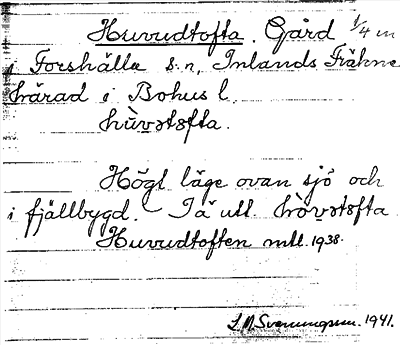 Huvudtofta. Gård 1/4 m
i Forshälla s:n, Inlands Fräkne
härad i Bohus l.
hùvətəfta.
Högl. läge ovan sjö och
i fjällbygd. Tä utt. hòvətəfta
Huvudtoften mtl. 1938.
1941.